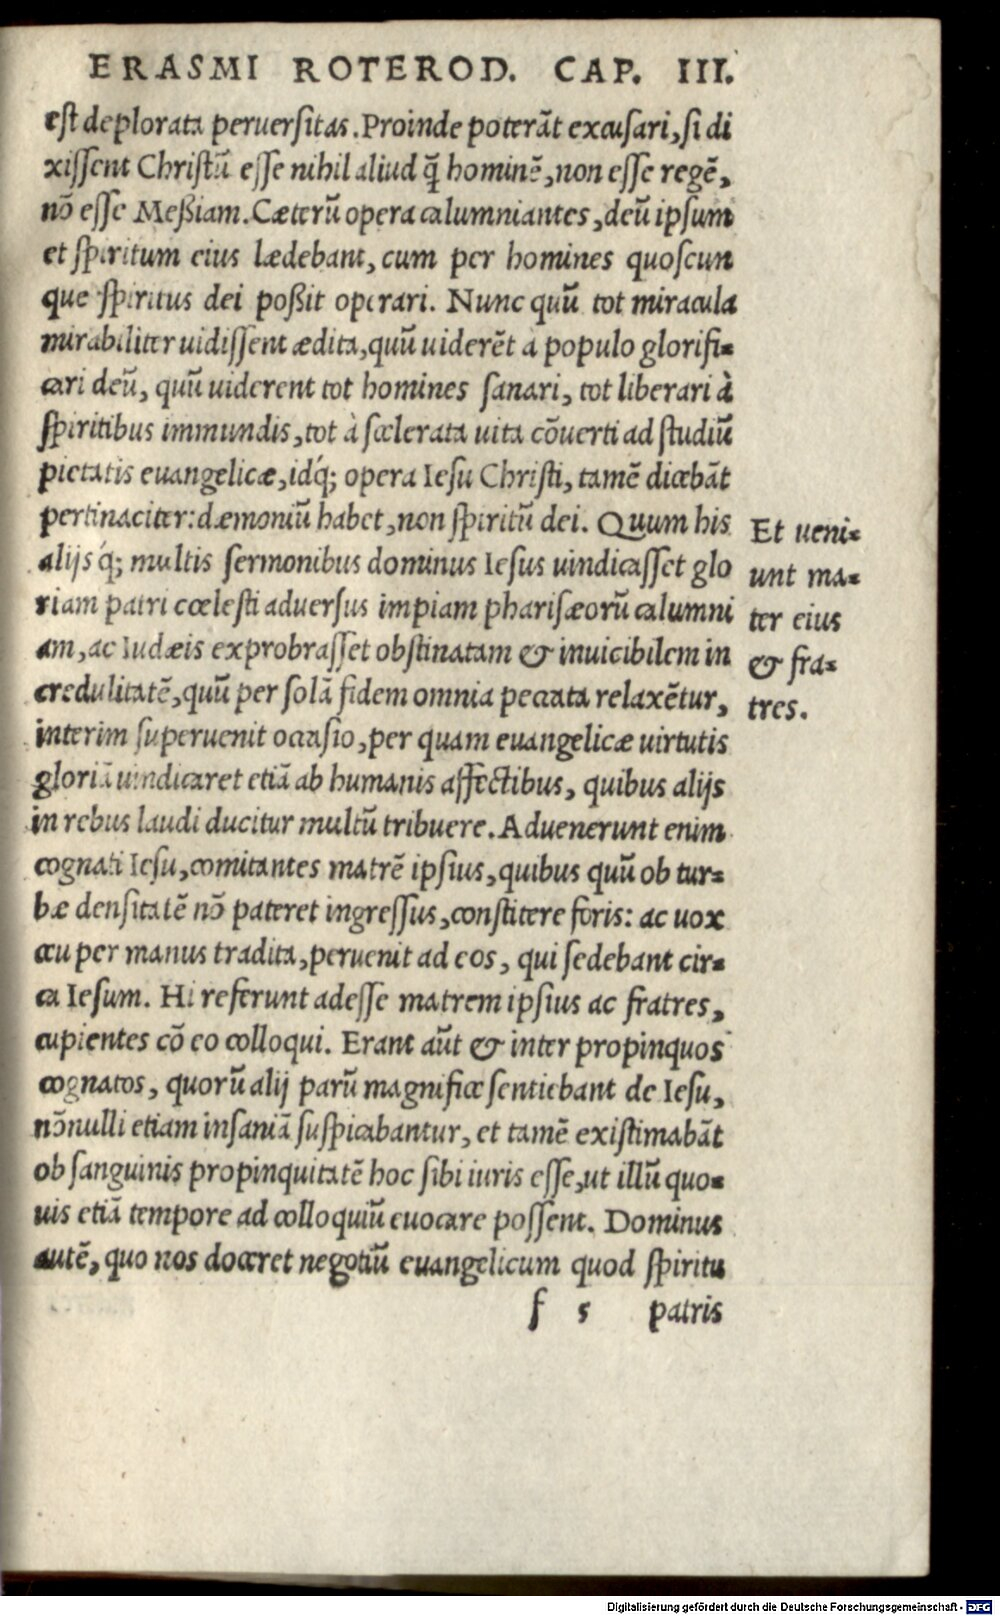 ERASMI ROTEROD. CAP. III.
est deplorata peruersitas. Proinde poterãt excusari, si di
xissent Christũ esse nihil aliud q̃ hominẽ, non esse regẽ,
nõ esse Meßiam. Cæterũ opera calumniantes, deũ ipsum
et spiritum eius lædebant, cum per homines quoscun
que spiritus dei poßit operari. Nunc quũ tot miracula
mirabiliter uidissent ædita, quũ uiderẽt à populo glorifi-
cari deũ, quũ uiderent tot homines sanari, tot liberari à
spiritibus immundis, tot à scelerata uita cõuerti ad studiũ
pietatis euangelicæ, idq́; opera Iesu Christi, tamẽ dicebãt
pertinaciter: dæmoniũ habet, non spiritũ dei. Quum his
alijs q́; multis sermonibus dominus Iesus uindicasset glo
riam patri cœlesti aduersus impiam pharisæorũ calumni
am, ac Iudæis exprobrasset obstinatam & inuicibilem in
credulitatẽ, quũ per solã fidem omnia peccata relaxẽtur,
interim superuenit occasio, per quam euangelicæ uirtutis
gloriã uindicaret etiã ab humanis affectibus, quibus alijs
in rebus laudi ducitur multũ tribuere. Aduenerunt enim
cognati Iesu, comitantes matrẽ ipsius, quibus quũ ob tur-
bæ densitatẽ nõ pateret ingressus, constitere foris: ac uox
ceu per manus tradita, peruenit ad eos, qui sedebant cir-
ca Iesum. Hi referunt adesse matrem ipsius ac fratres,
cupientes cõ eo colloqui. Erant aũt & inter propinquos
cognatos, quorũ alij parũ magnifice sentiebant de Iesu,
nõnulli etiam insaniã suspicabantur, et tamẽ existimabãt
ob sanguinis propinquitatẽ hoc sibi iuris esse, ut illũ quo-
uis etiã tempore ad colloquiũ euocare possent. Dominus
autẽ, quo nos doceret negotiũ euangelicum quod spiritu
f 5 patris
Et ueni-
unt ma-
ter eius
& fra-
tres.
Digitalisierung gefördert durch die Deutsche Forschungsgemeinschaft - DFG